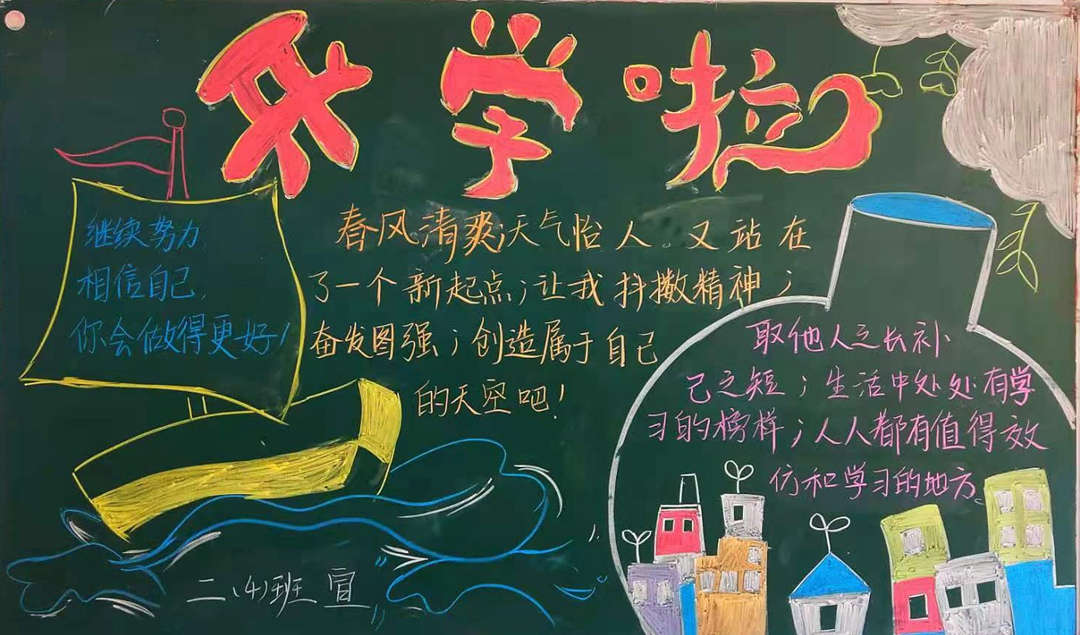 开学啦
继续努力,
相信自己,
你会做得更好!
春风清爽;天气怡人。又站在
了一个新起点;让我抖擞精神;
奋发图强;创造属于自己
的天空吧!
取他人之长补
己之短;生活中处处有学
习的榜样;人人都有值得效
仿和学习的地方。
二、(4)班 宣